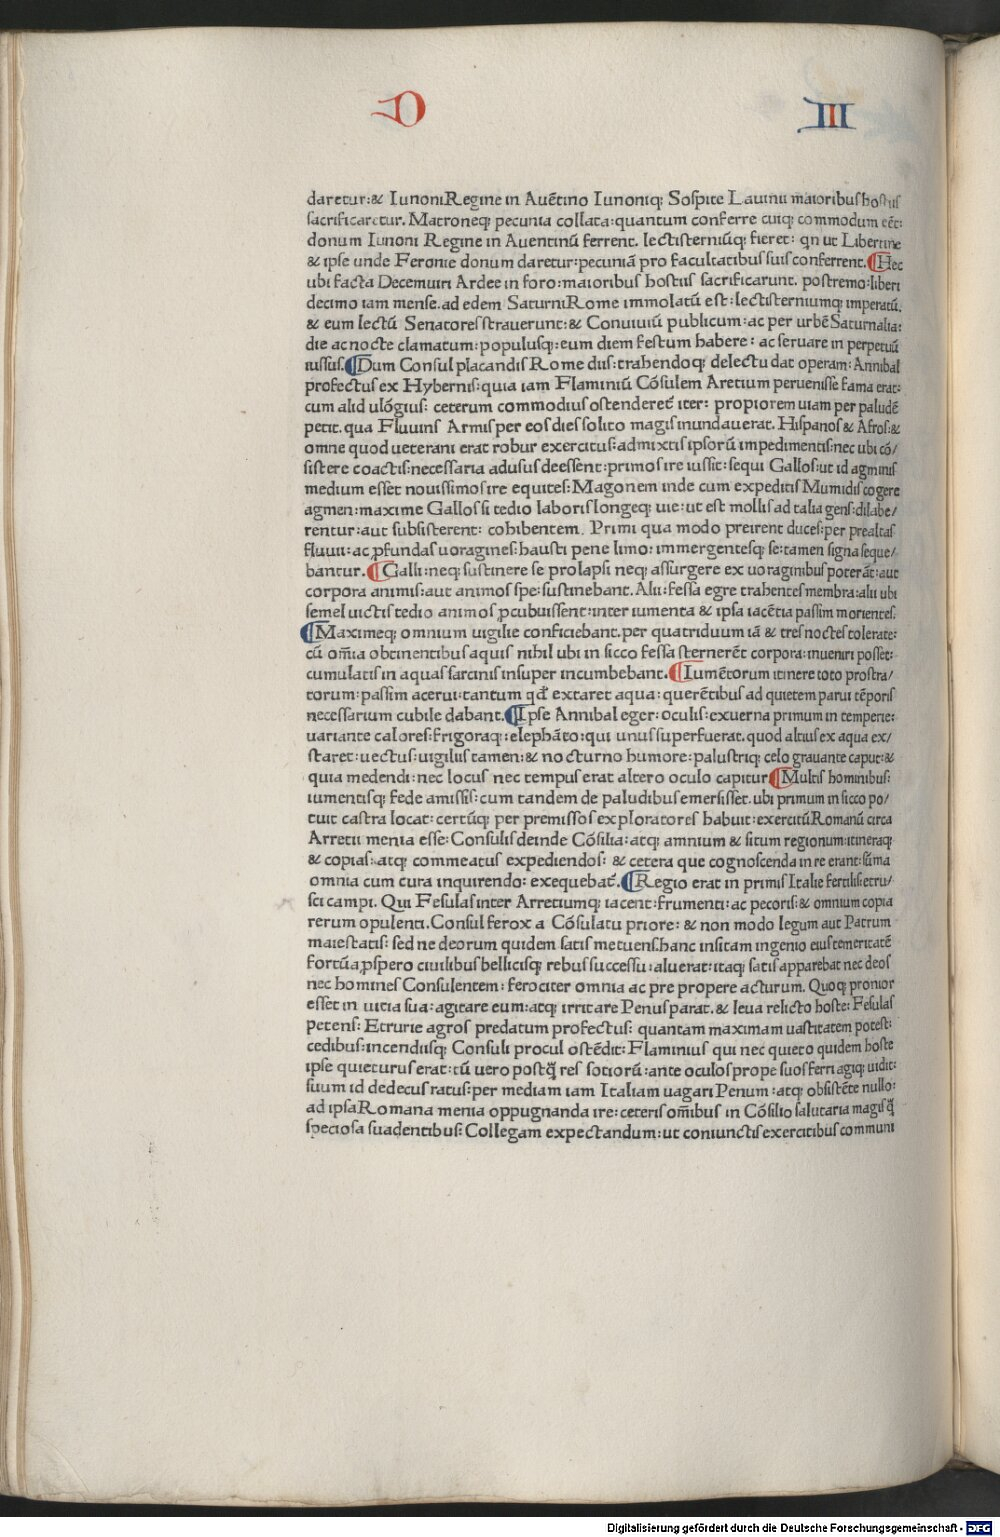 D III
daretur:& IunoniRegine in Auētino Iunoniq; Sospite Lauinii maioribushostiis
sacrificaretur. Matroneq; pecunia collata:quantum conferre cuiq; commodum eēt:
donum Iunoni Regine in Auentinū ferrent. lectisterniūq; fieret: qn ut Libertine
& ipse unde Feronie donum daretur:pecuniā pro facultatibus suis conferrent. ¶Hec
ubi facta Decemuiri Ardee in foro:maioribus hostiis sacrificarunt. postremo:liberi
decimo iam mense.ad edem SaturniRome immolatū est:lectisterniumq; imperatū.
& eum lectū Senatores strauerunt:& Conuiuiū publicum:ac per urbē Saturnalia:
die ac nocte clamatum:populusq;:eum diem festum habere: ac seruare in perpetuū
iussus.¶Dum Consul placandis Rome diis:trahendoq; delectu dat operam:Annibal
profectus ex Hybernis:quia iam Flaminiū Cōsulem Aretium peruenisse fama erat:
cum alid ulōgius: ceterum commodius ostenderet̄ iter: propiorem uiam per paludē
petit. qua Fluuins Armis per eos dies solito magis inundauerat. Hispanos & Afros:&
omne quod ueterani erat robur exercitus:admixtis ipsorū impedimentis:nec ubi cō/
sistere coactis:necessaria adusus deessent:primos ire iussit:sequi Gallos:ut id agminis
medium esset nouissimos ire equites:Magonem inde cum expeditis Mumidis cogere
agmen:maxime Gallos si tedio laboris longeq; uie:ut est mollis ad talia gens:dilabe/
rentur:aut subsisterent: cohibentem. Primi qua modo preirent duces:per prealtas
fluuii:ac ꝓfundas uoragines:hausti pene limo:immergentesq; se:tamen signa seque/
bantur.¶Galli:neq; sustinere se prolapsi neq; assurgere ex uoraginibus poterāt:aut
corpora animis:aut animos spe:sustinebant. Alii:fessa egre trahentes membra:alii ubi
semel uictis tedio animos ꝓcubuissent:inter iumenta & ipsa iacētia passim morientes.
¶Maximeq; omnium uigilie conficiebant.per quatriduum iā & tres noctes tolerate:
cū om̄ia obtinentibus aquis nihil ubi in sicco fessa sternerēt corpora:inueniri posset:
cumulatis in aquas sarcinis insuper incumbebant.¶Iumētorum itinere toto prostra/
torum:passim acerui:tantum qđ extaret aqua:querētibus ad quietem parui tēporis
necessarium cubile dabant.¶Ipse Annibal eger:oculis:exuerna primum in temperie:
uariante calores:frigoraq;:elephāto:qui unus superfuerat.quod altius ex aqua ex/
staret:uectus:uigiliis tamen:& nocturno humore:palustriq; celo grauante caput:&
quia medendi:nec locus nec tempus erat altero oculo capitur¶Multis hominibus:
iumentisq; fede amissis:cum tandem de paludibus emersisset.ubi primum in sicco po/
tuit castra locat:certūq; per premissos exploratores habuit:exercitū Romanū circa
Arretii menia esse:Consulis deinde Cōsilia:atq; amnium & situm regionum:itineraq;
& copias:atq; commeatus expediendos: & cetera que cognoscenda in re erant:sūma
omnia cum cura inquirendo:exequebat̄.¶Regio erat in primis Italie fertilis:etru/
sci campi. Qui Fesulas inter Arretiumq; iacent:frumenti:ac pecoris:& omnium copia
rerum opulenti.Consul ferox a Cōsulatu priore:& non modo legum aut Patrum
maiestatis:sed ne deorum quidem satis metuens.hanc insitam ingenio eius temeritatē
fortūa ꝓspero ciuilibus bellicisq; rebus successu:aluerat:itaq; satis apparebat nec deos
nec homines Consulentem:ferociter omnia ac pre propere acturum. Quoq; pronior
esset in uitia sua:agitare eum:atq; irritare Penus parat.& leua relicto hoste:Fesulas
petens:Etrurie agros predatum profectus: quantam maximam uastitatem potest:
cedibus:incendiisq; Consuli procul ostēdit:Flaminius qui nec quieto quidem hoste
ipse quieturus erat:tū uero postq̄ res sotiorū:ante oculos prope suos ferri agiq; uidit:
suum id dedecus ratus:per mediam iam Italiam uagari Penum:atq; obsistēte nullo:
ad ipsa Romana menia oppugnanda ire:ceteris om̄ibus in Cōsilio salutaria magis q̄
speciosa suadentibus:Collegam expectandum:ut coniunctis exercitibus communi
Digitalisierung gefördert durch die Deutsche Forschungsgemeinschaft - DFG